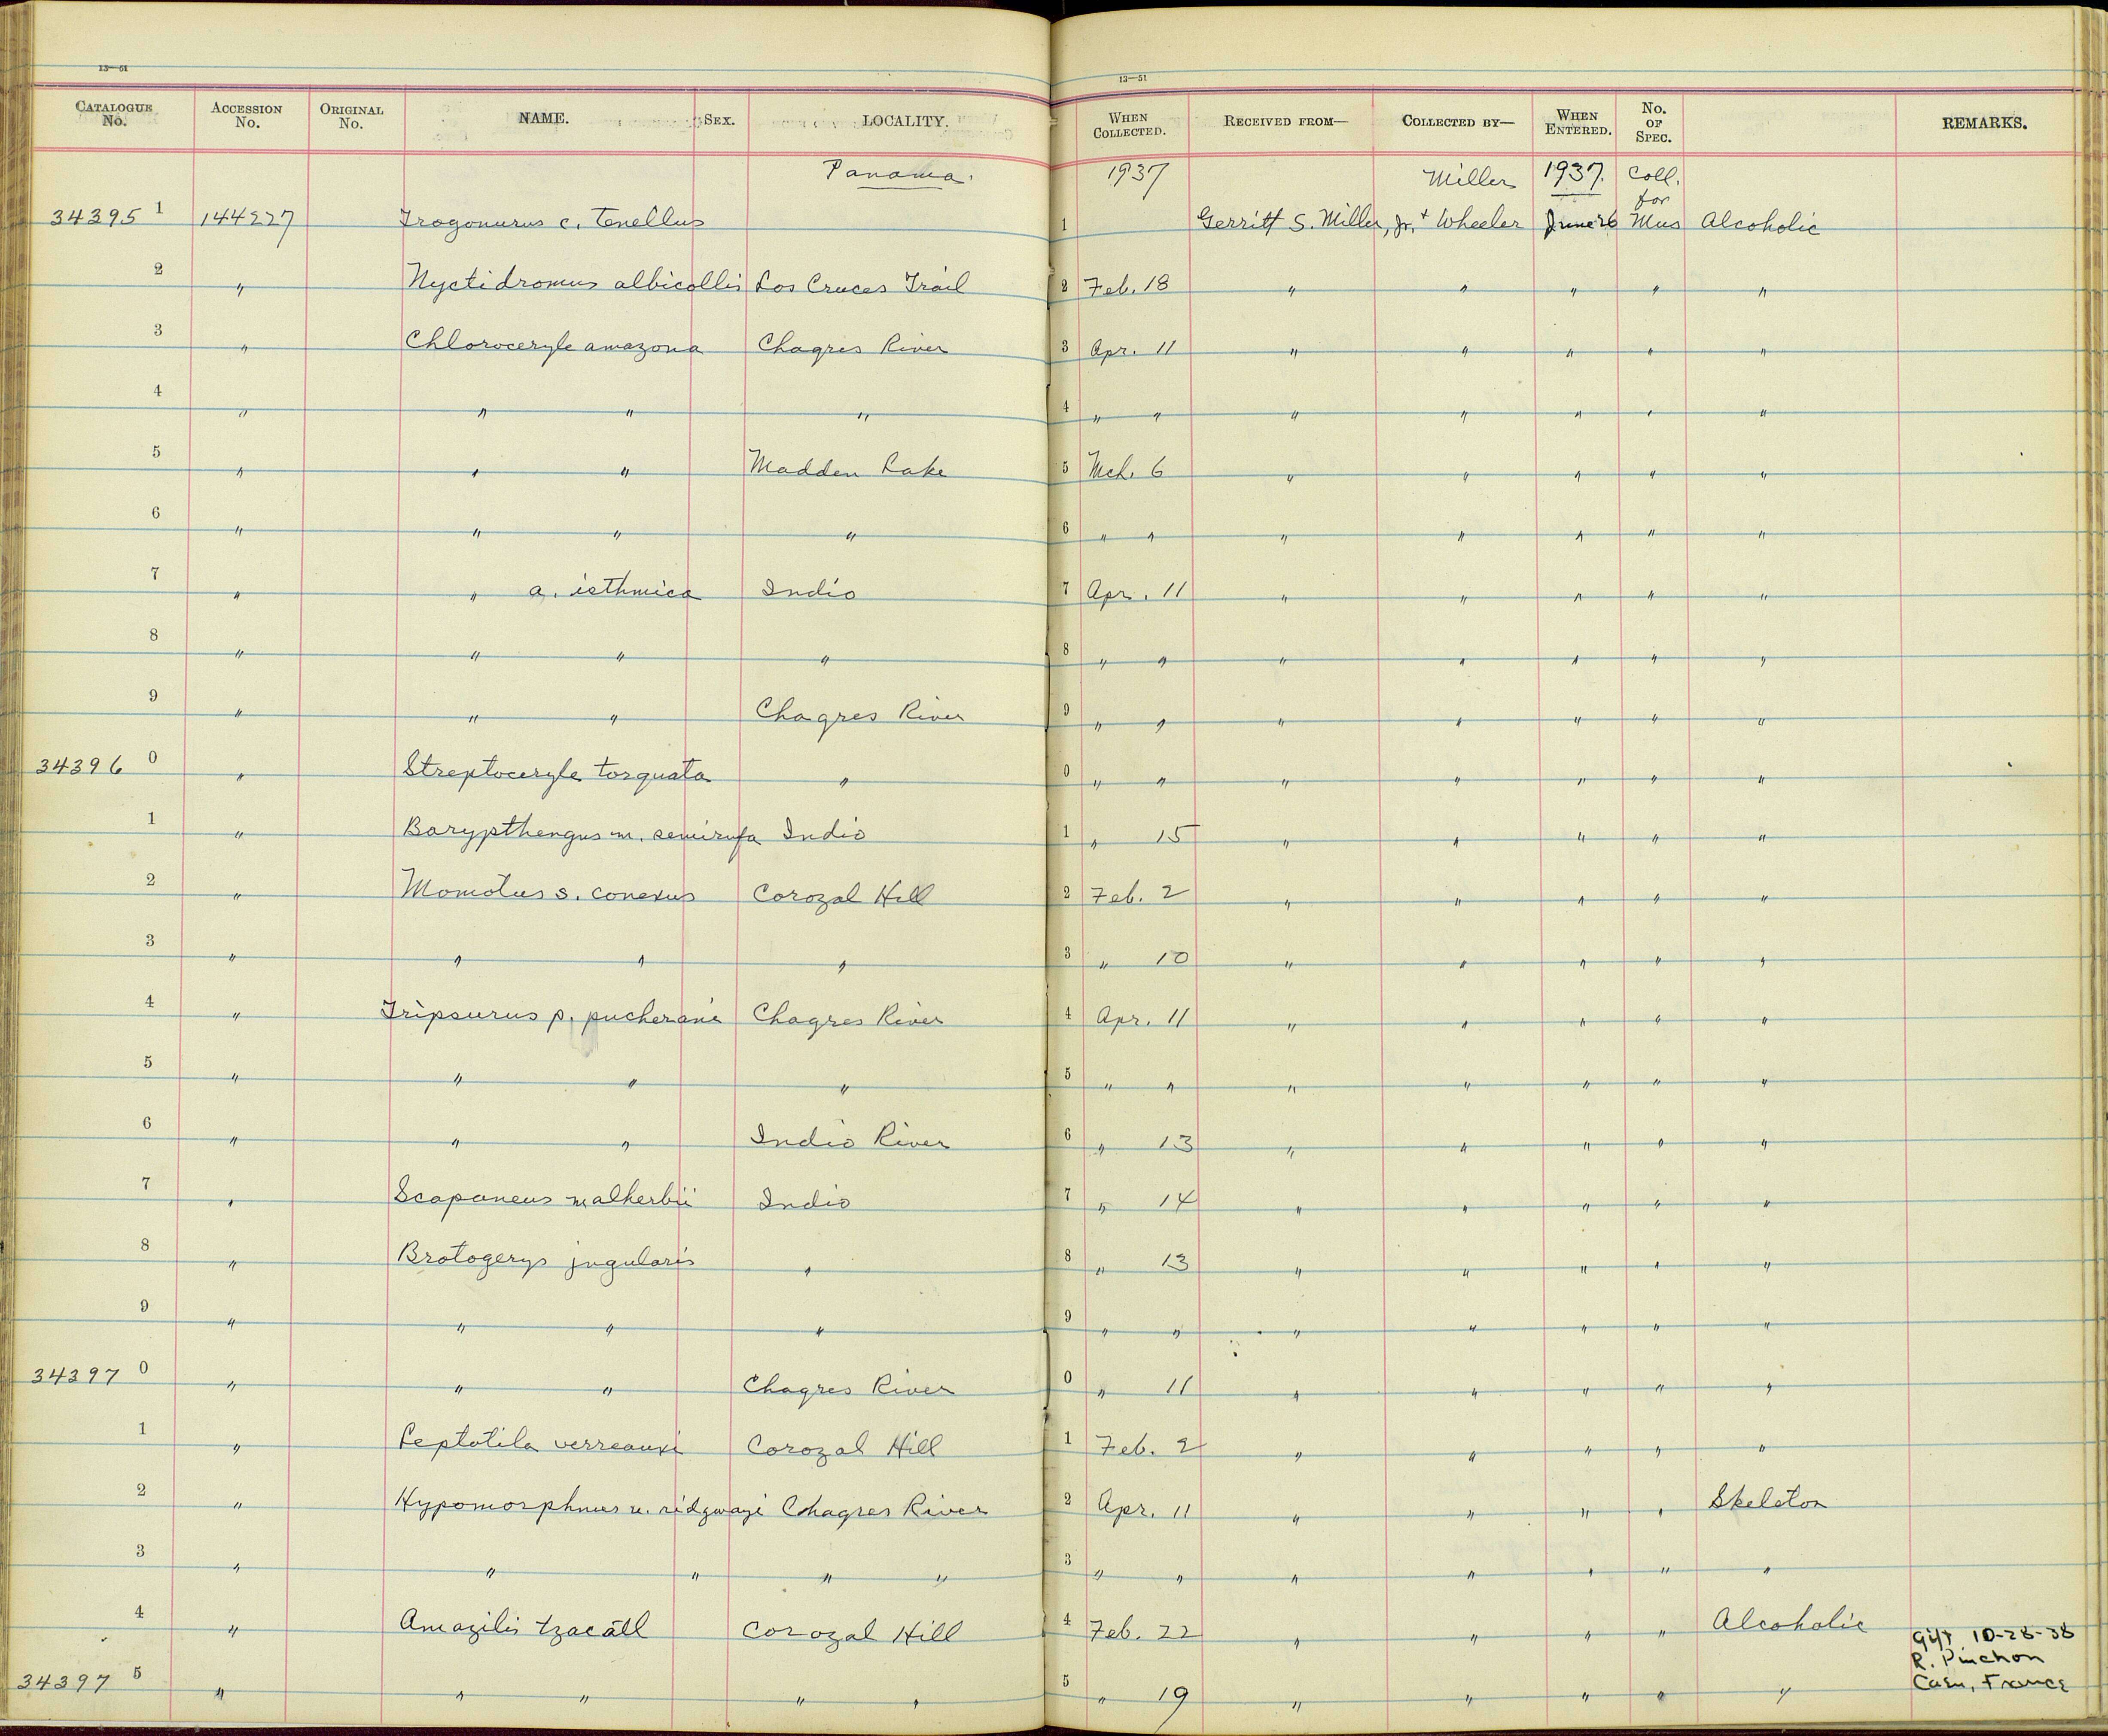 13—51
13—51
CATALOGUE No. ACCESSION No. ORIGINAL No. NAME. SEX. LOCALITY. WHEN COLLECTED. RECEIVED FROM— COLLECTED BY— WHEN ENTERED. No. OF SPEC. REMARKS.
Panama. 1937 Miller 1937. Coll.
for
34395 1 144227 Trogonurus c. tenellus 1 Gerrit S. Miller, Jr. + Wheeler June 26 Mus Alcoholic
2 " Nyctidromus albicollis Las Cruces Trail 2 Feb. 18 " " " " "
3 " Chloroceryle amazona Chagres River 3 Apr. 11 " " " " "
4 " " " " 4 " " " " " " "
5 " " " Madden Lake 5 Mch. 6 " " " " "
6 " " " " 6 " " " " " " "
7 " " a. isthmica Indio 7 Apr. 11 " " " " "
8 " " " " 8 " " " " " " "
9 " " " Chagres River 9 " " " " " " "
34396 0 " Streptoceryle torquata " 0 " " " " " " "
1 " Barypthengus m. semirufa Indio 1 " 15 " " " " "
2 " Momotus s. conexus Corozal Hill 2 Feb. 2 " " " " "
3 " " " " 3 " 10 " " " " "
4 " Tripsurus p. pucherani Chagres River 4 Apr. 11 " " " " "
5 " " " " 5 " " " " " " "
6 " " " Indio River 6 " 13 " " " " "
7 " Scapaneus malherbii Indio 7 " 14 " " " " "
8 " Brotogerys jugularis " 8 " 13 " " " " "
9 " " " " 9 " " " " " " "
34397 0 " " " Chagres River 0 " 11 " " " " "
1 " Leptotila verreauxi Corozal Hill 1 Feb. 2 " " " " "
2 " Hypomorphnus u. ridgwayi Chagres River 2 Apr. 11 " " " " Skeleton
3 " " " " " 3 " " " " " " "
4 " Amazilis tzacatl Corozal Hill 4 Feb. 22 " " " " Alcoholic
Gift 10-28-38
R. Pinchon
Caen, France
34397 5 " " " " " 5 " 19 " " " " "